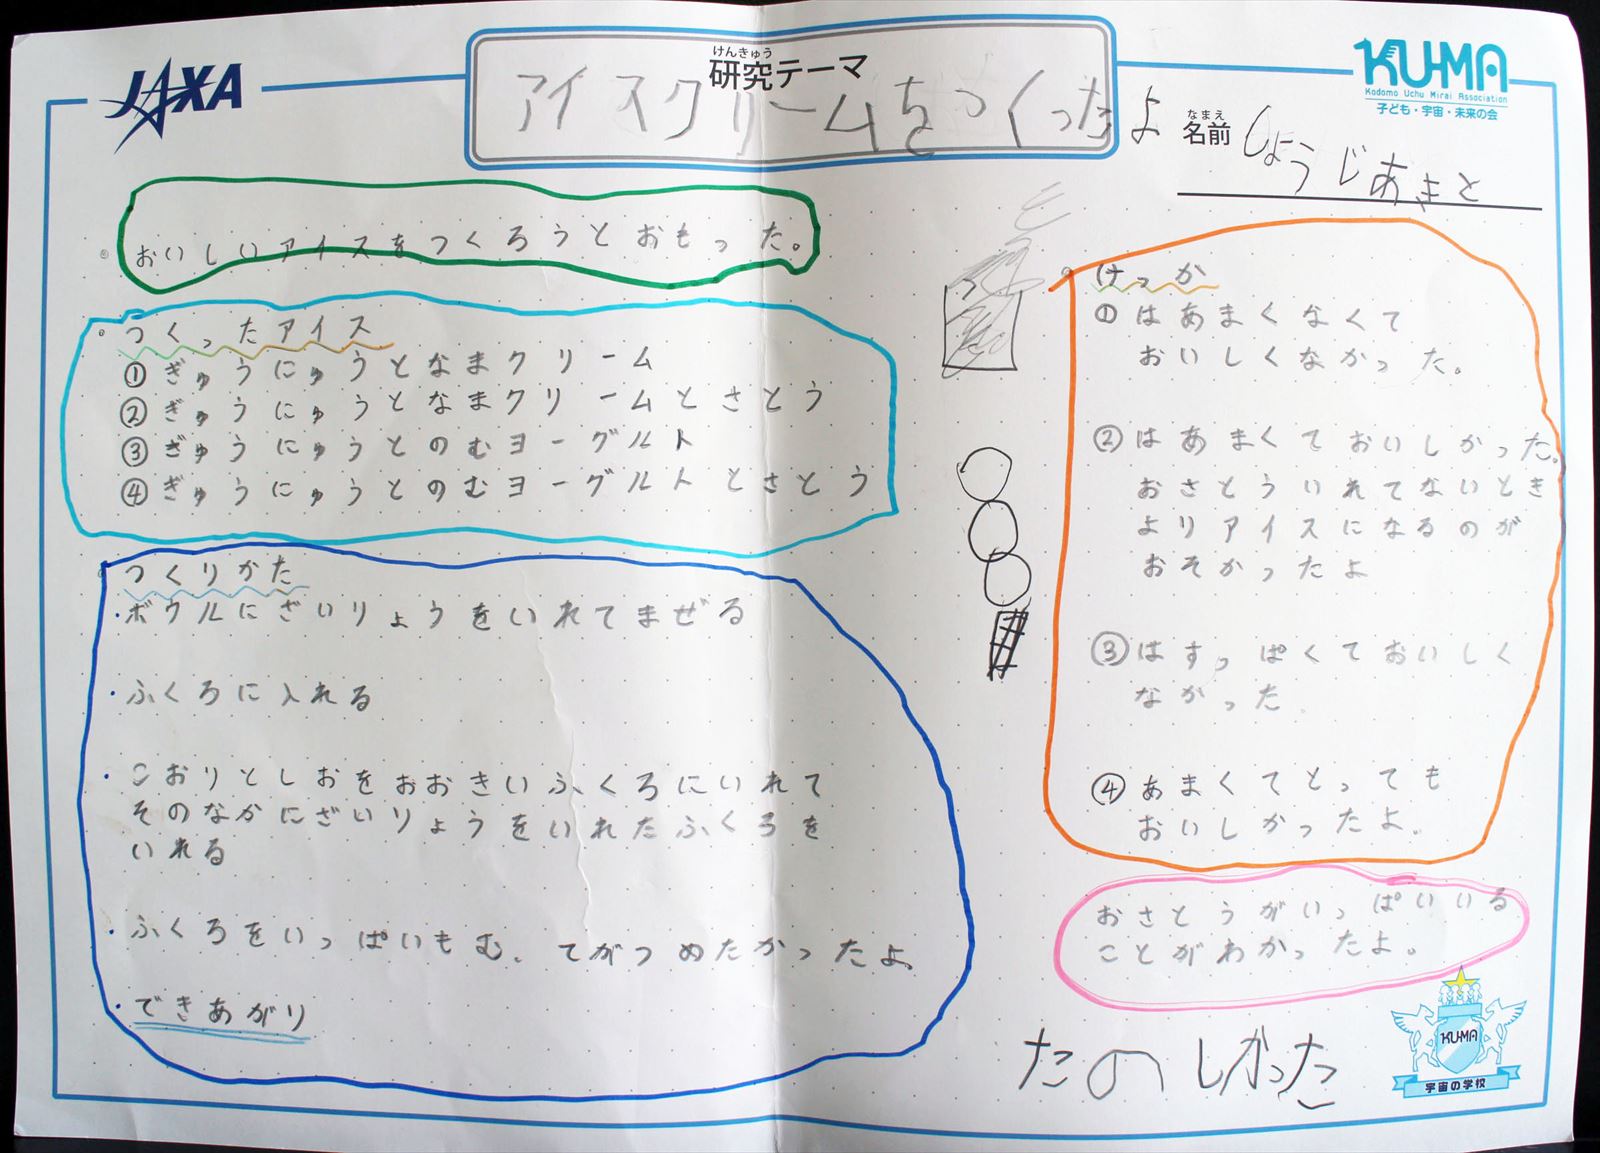 JAXA
けんきゅう
研究テーマ
アイスクリームをつくったよ
KU-MA
Kodomo Uchu Mirai Association
子ども・宇宙・未来の会
なまえ
名前 しょうじあきと
おいしいアイスをつくろうとおもった。
つくったアイス
①ぎゅうにゅうとなまクリーム
②ぎゅうにゅうとなまクリームとさとう
③ぎゅうにゅうとのむヨーグルト
④ぎゅうにゅうとのむヨーグルトとさとう
つくりかた
・ボウルにざいりょうをいれてまぜる
・ふくろに入れる
・こおりとしおをおおきいふくろにいれて
そのなかにざいりょうをいれたふくろを
いれる
・ふくろをいっぱいもむ、てがつめたかったよ。
・できあがり
けっか
①はあまくなくて
おいしくなかった。
②はあまくておいしかった。
おさとういれてないとき
よりアイスになるのが
おそかったよ
③はすっぱくておいしく
なかった
④あまくてとっても
おいしかったよ。
おさとうがいっぱいいる
ことがわかったよ。
たのしかった
KU-MA
宇宙の学校